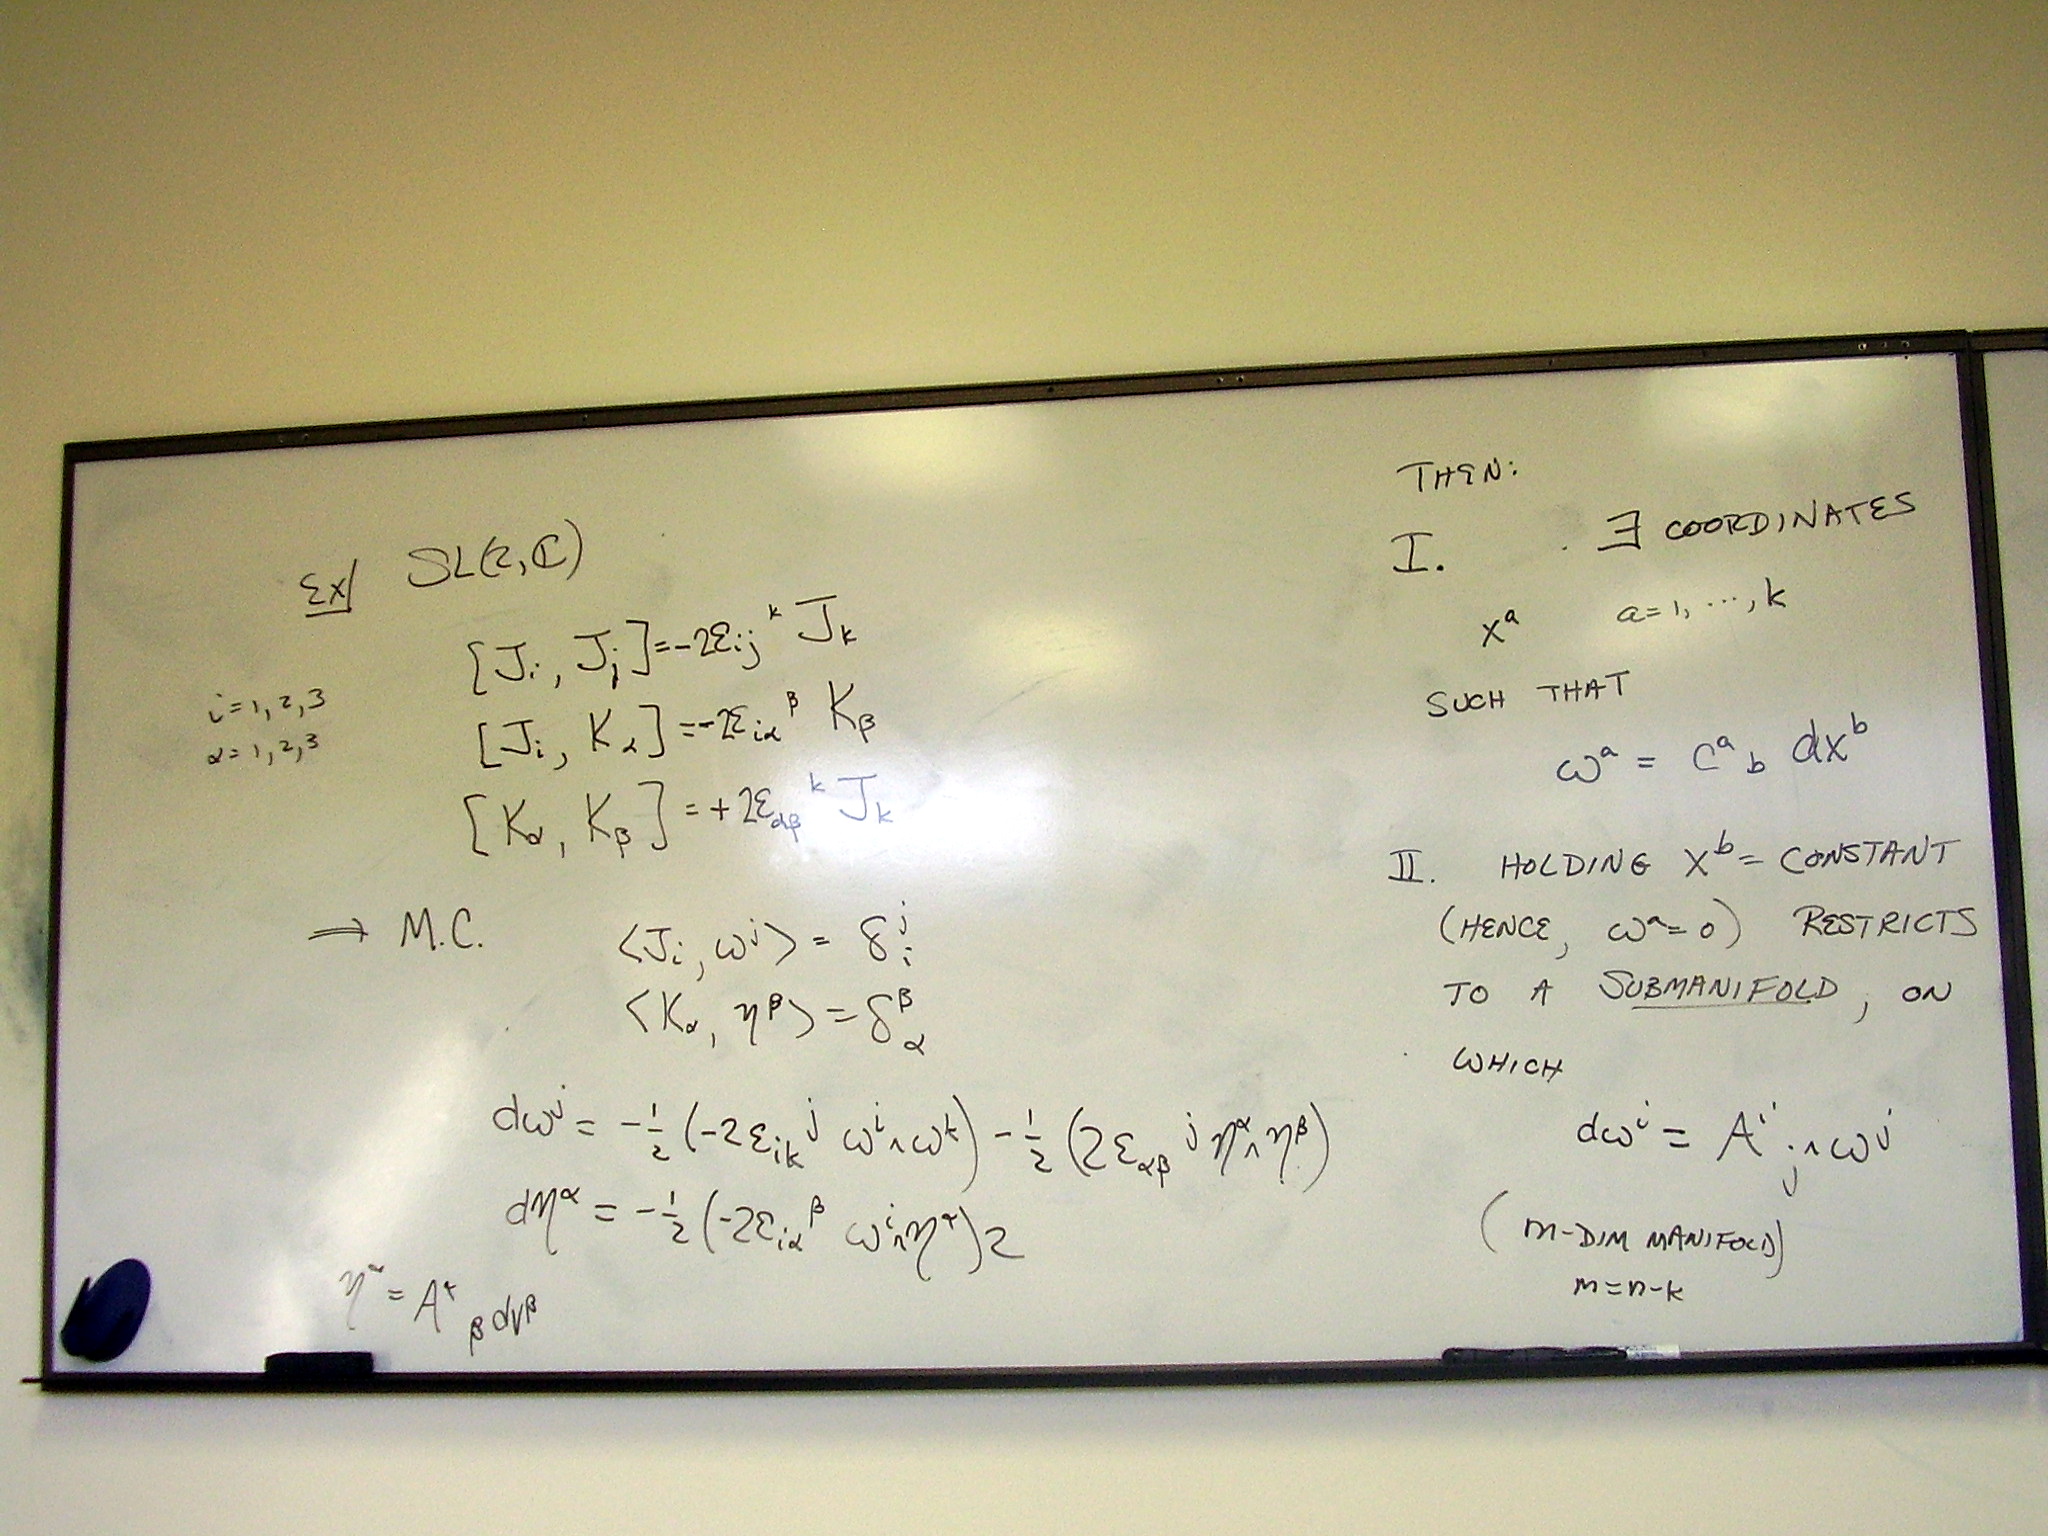 Ex/ SL(2,ℂ)
[J_i, J_j] = -2ε_{ij}^k J_k
i = 1, 2, 3
[J_i, K_α] = -2ε_{iα}^β K_β
α = 1, 2, 3
[K_α, K_β] = +2ε_{αβ}^k J_k
⇒ M.C. <J_i, ω^j> = δ_i^j
<K_α, η^β> = δ_α^β
dω^j = -1/2 (-2ε_{ik}^j ω^i∧ω^k) - 1/2 (2ε_{αβ}^j η^α∧η^β)
dη^α = -1/2 (-2ε_{iα}^β ω^i∧η^α) 2
η^α = A^α_β dy^β
THEN:
I. ∃ COORDINATES
x^a a = 1, ..., k
SUCH THAT
ω^a = c^a_b dx^b
II. HOLDING x^b = CONSTANT
(HENCE, ω^a = 0) RESTRICTS
TO A SUBMANIFOLD, ON
WHICH
dω^i = A^i_j ∧ ω^j
(m-DIM MANIFOLD)
m = n-k